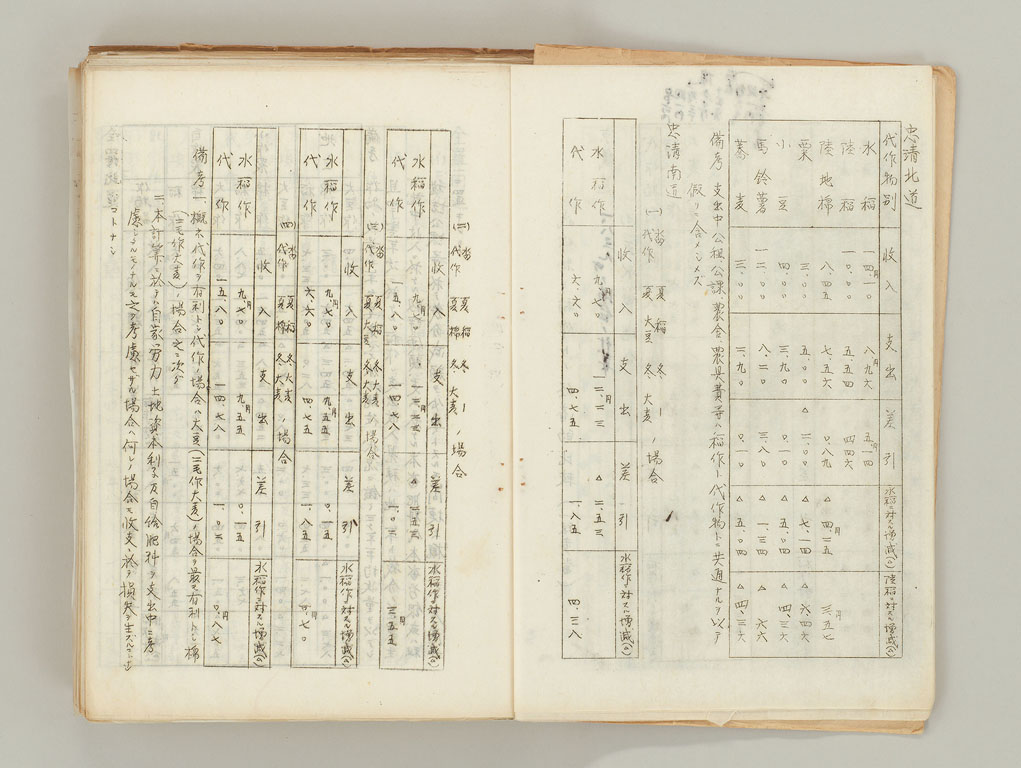 忠清北道
代作物別 收入 支出 差引 水稻ニ対スル増減(△) 陸稻ニ対スル増減(△)
水稻 一四、一〇 八、九六 五、一四
陸稻 一〇、〇〇 五、五四 四、四六
陸地棉 八、四五 七、五六 〇、八九 △四、二五 三、五七
粟 三、〇〇 五、〇〇 △二、〇〇 △七、一四 △六、四六
小豆 四、〇〇 三、九〇 〇、一〇 △五、〇四 △四、三六
馬鈴薯 一二、〇〇 八、二〇 三、八〇 △一、三四 △六六
蕎麦 三、〇〇 三、九〇 △五、〇四 △四、三六
備考 支出中公租公課農舎農具費等ハ稻作ト代作物トニ共通ナルヲ以テ
假リニ合メシメズ
忠清南道
(一)畓 夏稻 冬ー
代作 夏大豆 冬大麦 ノ場合
收入 支出 差引 水稻作ニ対スル増減(△)
水稻作 九、七〇 一二、二三 △二、五三
代作 六、六〇 四、七五 一、八五 四、三八
(二)畓 夏稻 冬ー
代作 夏棉 冬大麦 ノ場合
收入 支出 差引 水稻作ニ対スル増減(△)
水稻作 九、七〇 一二、二三 △二、五三
代作 一五、八〇 一四、七八 一、〇二 三、五五
(三)畓 夏稻 冬大麦
代作 夏大豆 冬大麦 ノ場合
收入 支出 差引 水稻作ニ対スル増減(△)
水稻作 九、七〇 九、五五 〇、一五
代作 六、六〇 四、七五 一、八五 〇、七〇
(四)畓 夏稻 冬大麦
代作 夏棉 冬大麦 ノ場合
收入 支出 差引 水稻作ニ対スル増減(△)
水稻作 九、七〇 九、五五 〇、一五
代作 一五、八〇 一四、七八 一、〇二 〇、八七
備考 一、概ネ代作ヲ有利トシ代作ノ場合ハ大豆(二毛作大麦)ノ場合ヲ最モ有利トシ棉
(二毛作大麦)ノ場合之ニ次グ
二、本計算ニ於テハ自家労力土地資本利子及自給肥料ヲ支出中ニ考
慮シタルモノナルモ之ヲ考慮セザル場合ハ何レノ場合モ收支ニ於テ損失ヲ生スルコト
コトナシ